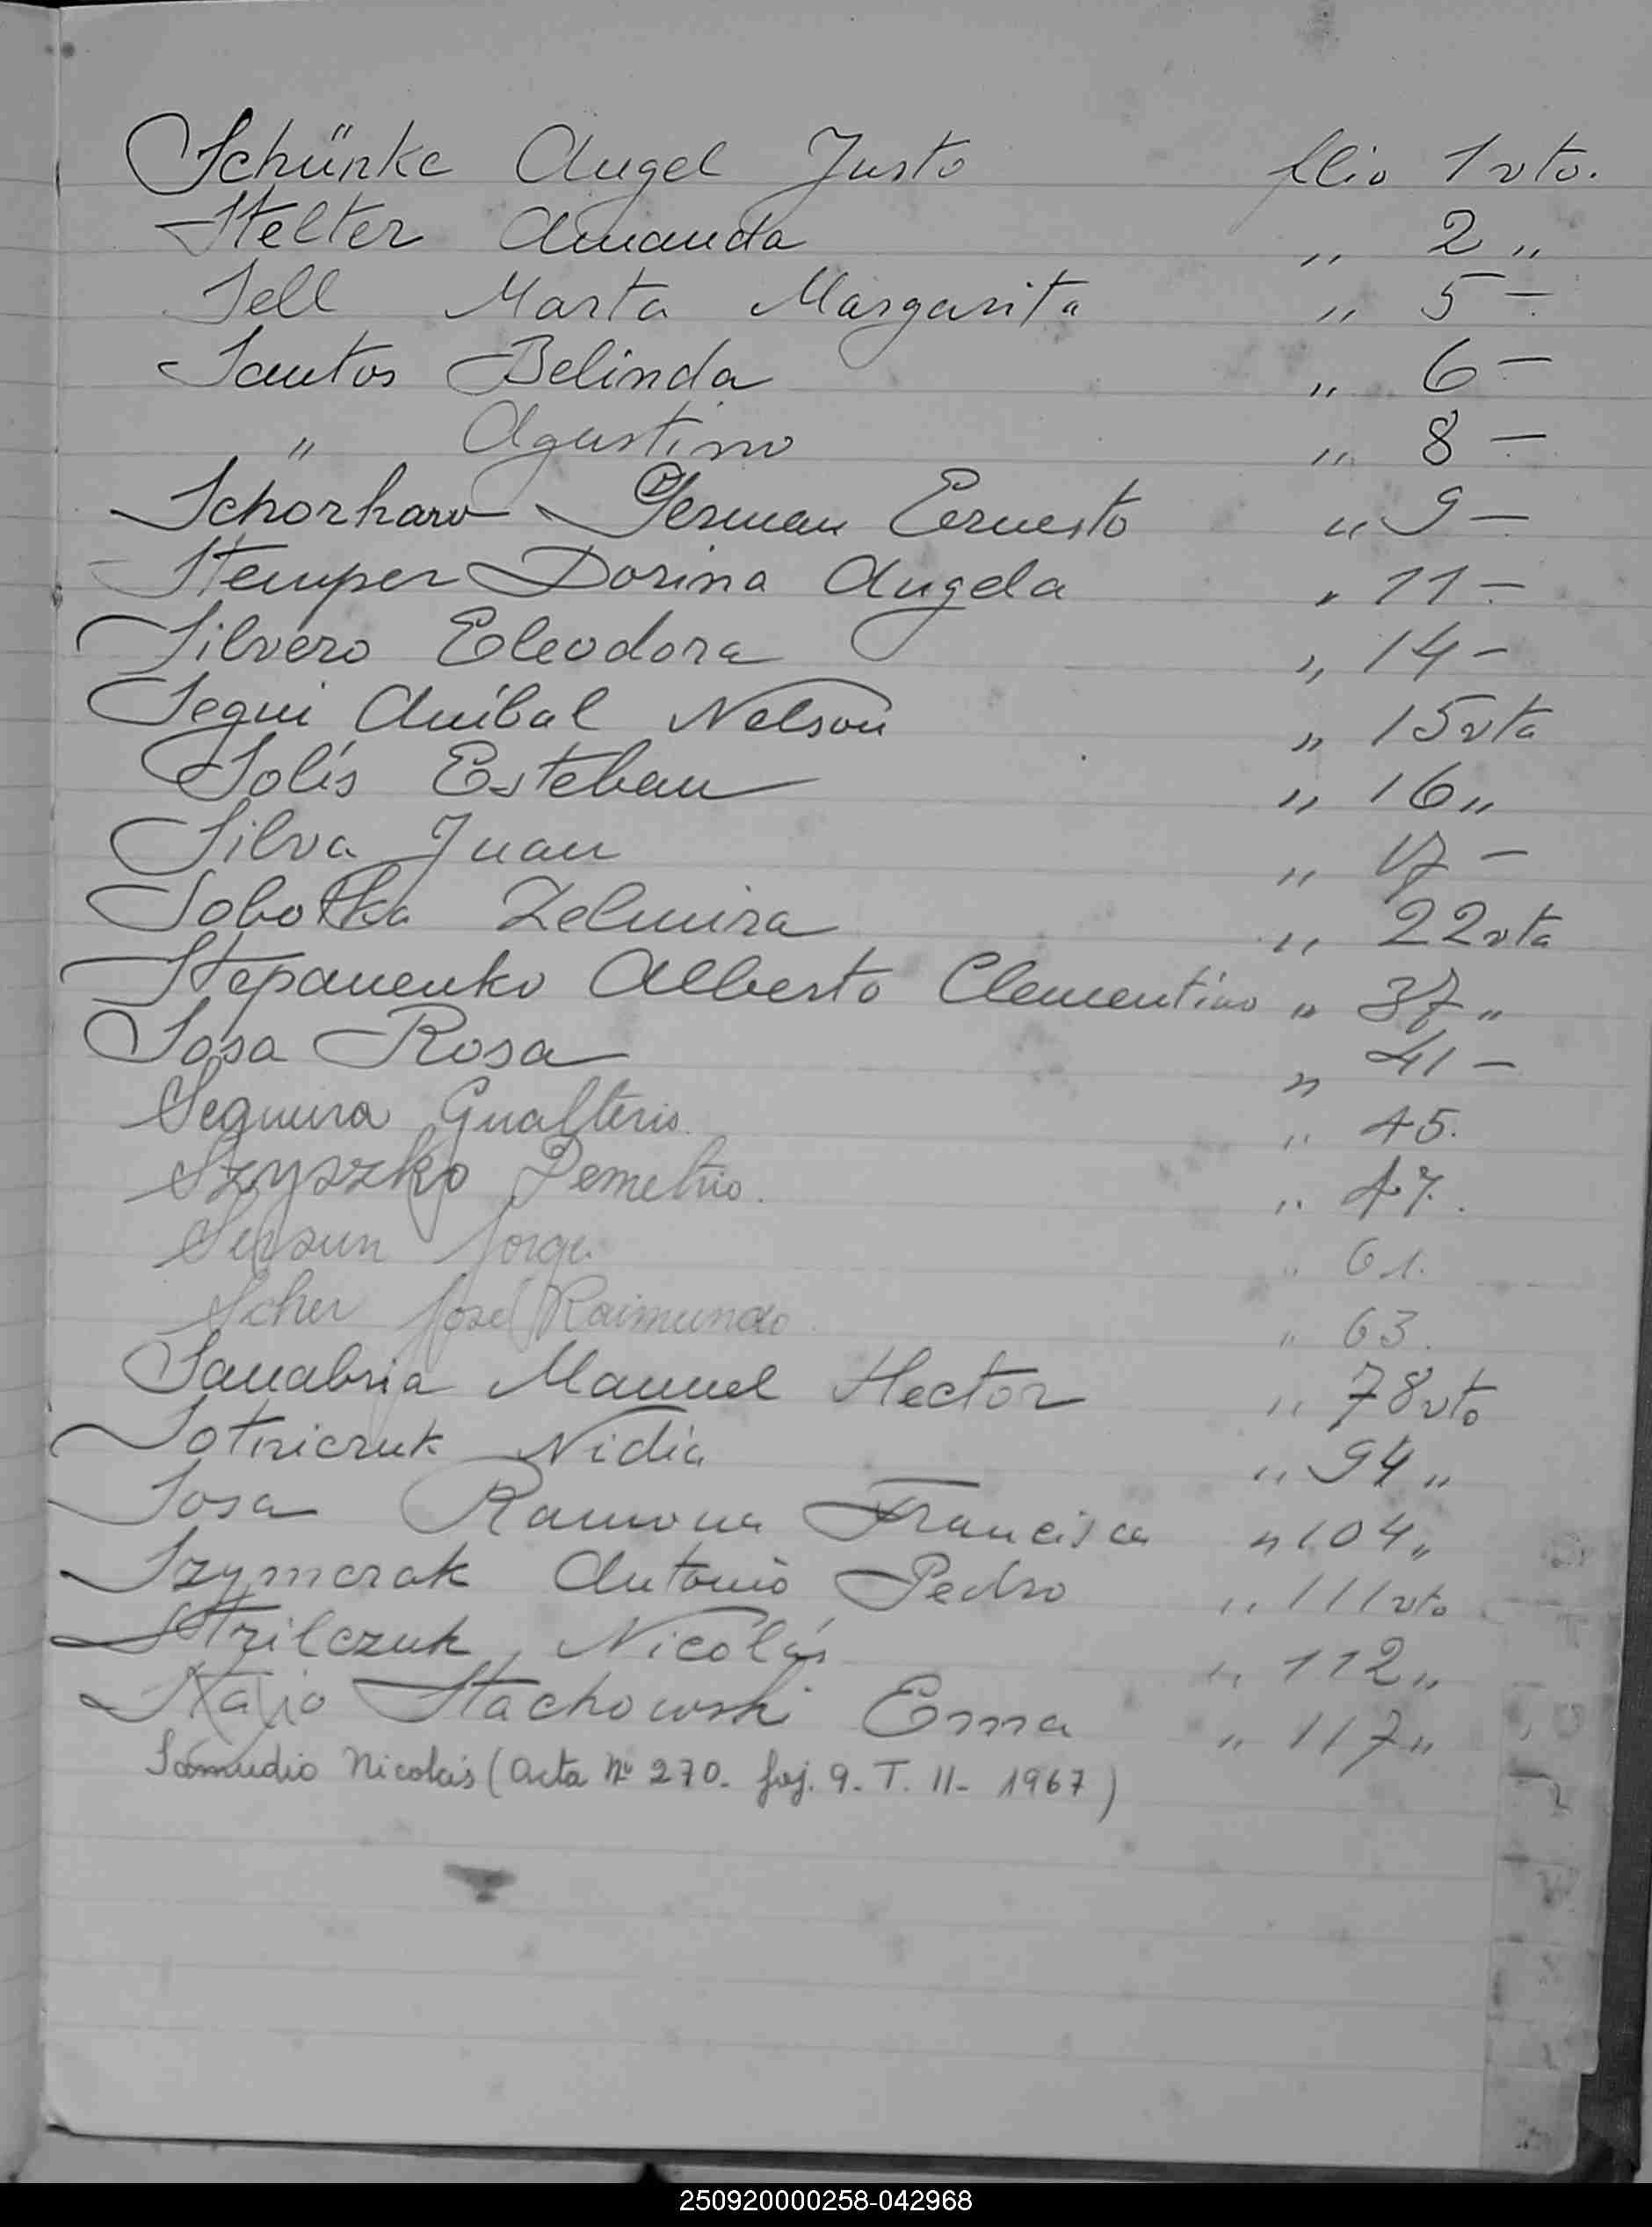 Schünke Angel Justo flio 1 vto.
Stelter Amanda " 2 "
Sell Marta Margarita " 5 -
Santos Belinda " 6 -
" Agustino " 8 -
Schorharo German Ernesto " 9 -
Stemper Dorina Angela " 11 -
Silvero Eleodora " 14 -
Segui Anibal Nelson " 15 vta
Solís Esteban " 16 "
Silva Juan " 17 -
Sobotka Zelmira " 22 vta
Stepanenko Alberto Clementino " 37 "
Sosa Rosa " 41 -
Seguura Gualterio. " 45.
Szyszko Demetrio. " 47.
Jorge. " 61.
Scher José Raimundo. " 63.
Sanabria Manuel Hector " 78 vto
Sotniczuk Nidia " 94 "
Sosa Ramona Francisca " 104 "
Szymczak Antonio Pedro " 111 vto
Strilczuk, Nicolás " 112 "
Stachowski Erna " 117 "
Samudio Nicolás (Acta Nº 270. foj. 9. T. II- 1967)
250920000258-042968